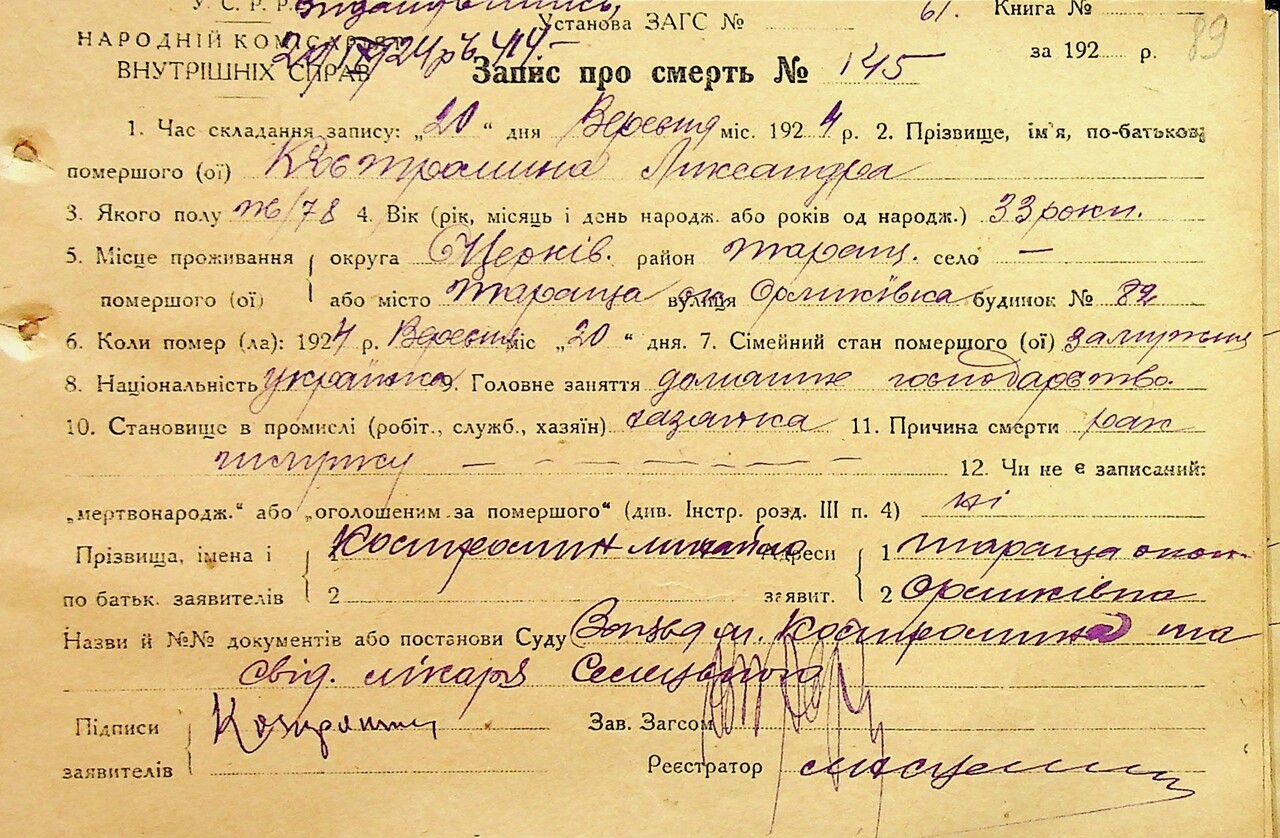 У. С. Р. Р.
Установа ЗАГС № 61. Книга №
НАРОДНІЙ КОМІСАРІЯТ за 192 р. 89
ВНУТРІШНІХ СПРАВ Запис про смерть № 145
1. Час складання запису: „20“ дня Вересня міс. 1924 р. 2. Прізвище, ім'я, по-батькові
помершого (ої) Костромина Лександра
3. Якого полу ж/78 4. Вік (рік, місяць і день народж. або років од народж.) 33 роки.
5. Місце проживання округа Б Церків. район Таращ. село —
помершого (ої) або місто Тараща вулиця Орликівка будинок № 82
6. Коли помер (ла): 1924 р. Вересня міс „20“ дня. 7. Сімейний стан помершого (ої) замужня
8. Національність українка 9. Головне заняття домашнє господарство.
10. Становище в промислі (робіт., служб., хазяїн) хазяйка 11. Причина смерти рак
шлунку — — — — — — — — 12. Чи не є записаний:
„мертвонародж.“ або „оголошеним за помершого“ (див. Інстр. розд. III п. 4) ні
Прізвища, імена і 1 Костромин Михайло Адреси 1 Тараща
по батьк. заявителів 2 заявит. 2 Орликівка
Назви й №№ документів або постанови Суду Костромина та
свід. лікаря
Підписи Зав. Загсом
заявителів Реєстратор